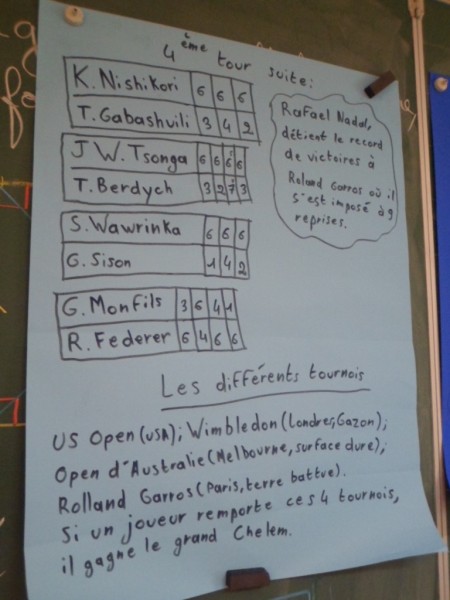 4ème tour suite:
K. Nishikori 6 6 6
T. Gabashvili 3 4 2
J W. Tsonga 6 6 6 6
T. Berdych 3 2 7 3
S. Wawrinka 6 6 6
G. Sison 1 4 2
G. Monfils 3 6 4 1
R. Federer 6 4 6 6
Rafael Nadal,
détient le record
de victoires à
Roland Garros où il
s'est imposé à 9
reprises.
Les différents tournois
US Open (USA); Wimbledon (Londres, Gazon);
Open d'Australie (Melbourne, surface dure);
Rolland Garros (Paris, terre battue).
Si un joueur remporte ces 4 tournois,
il gagne le grand Chelem.